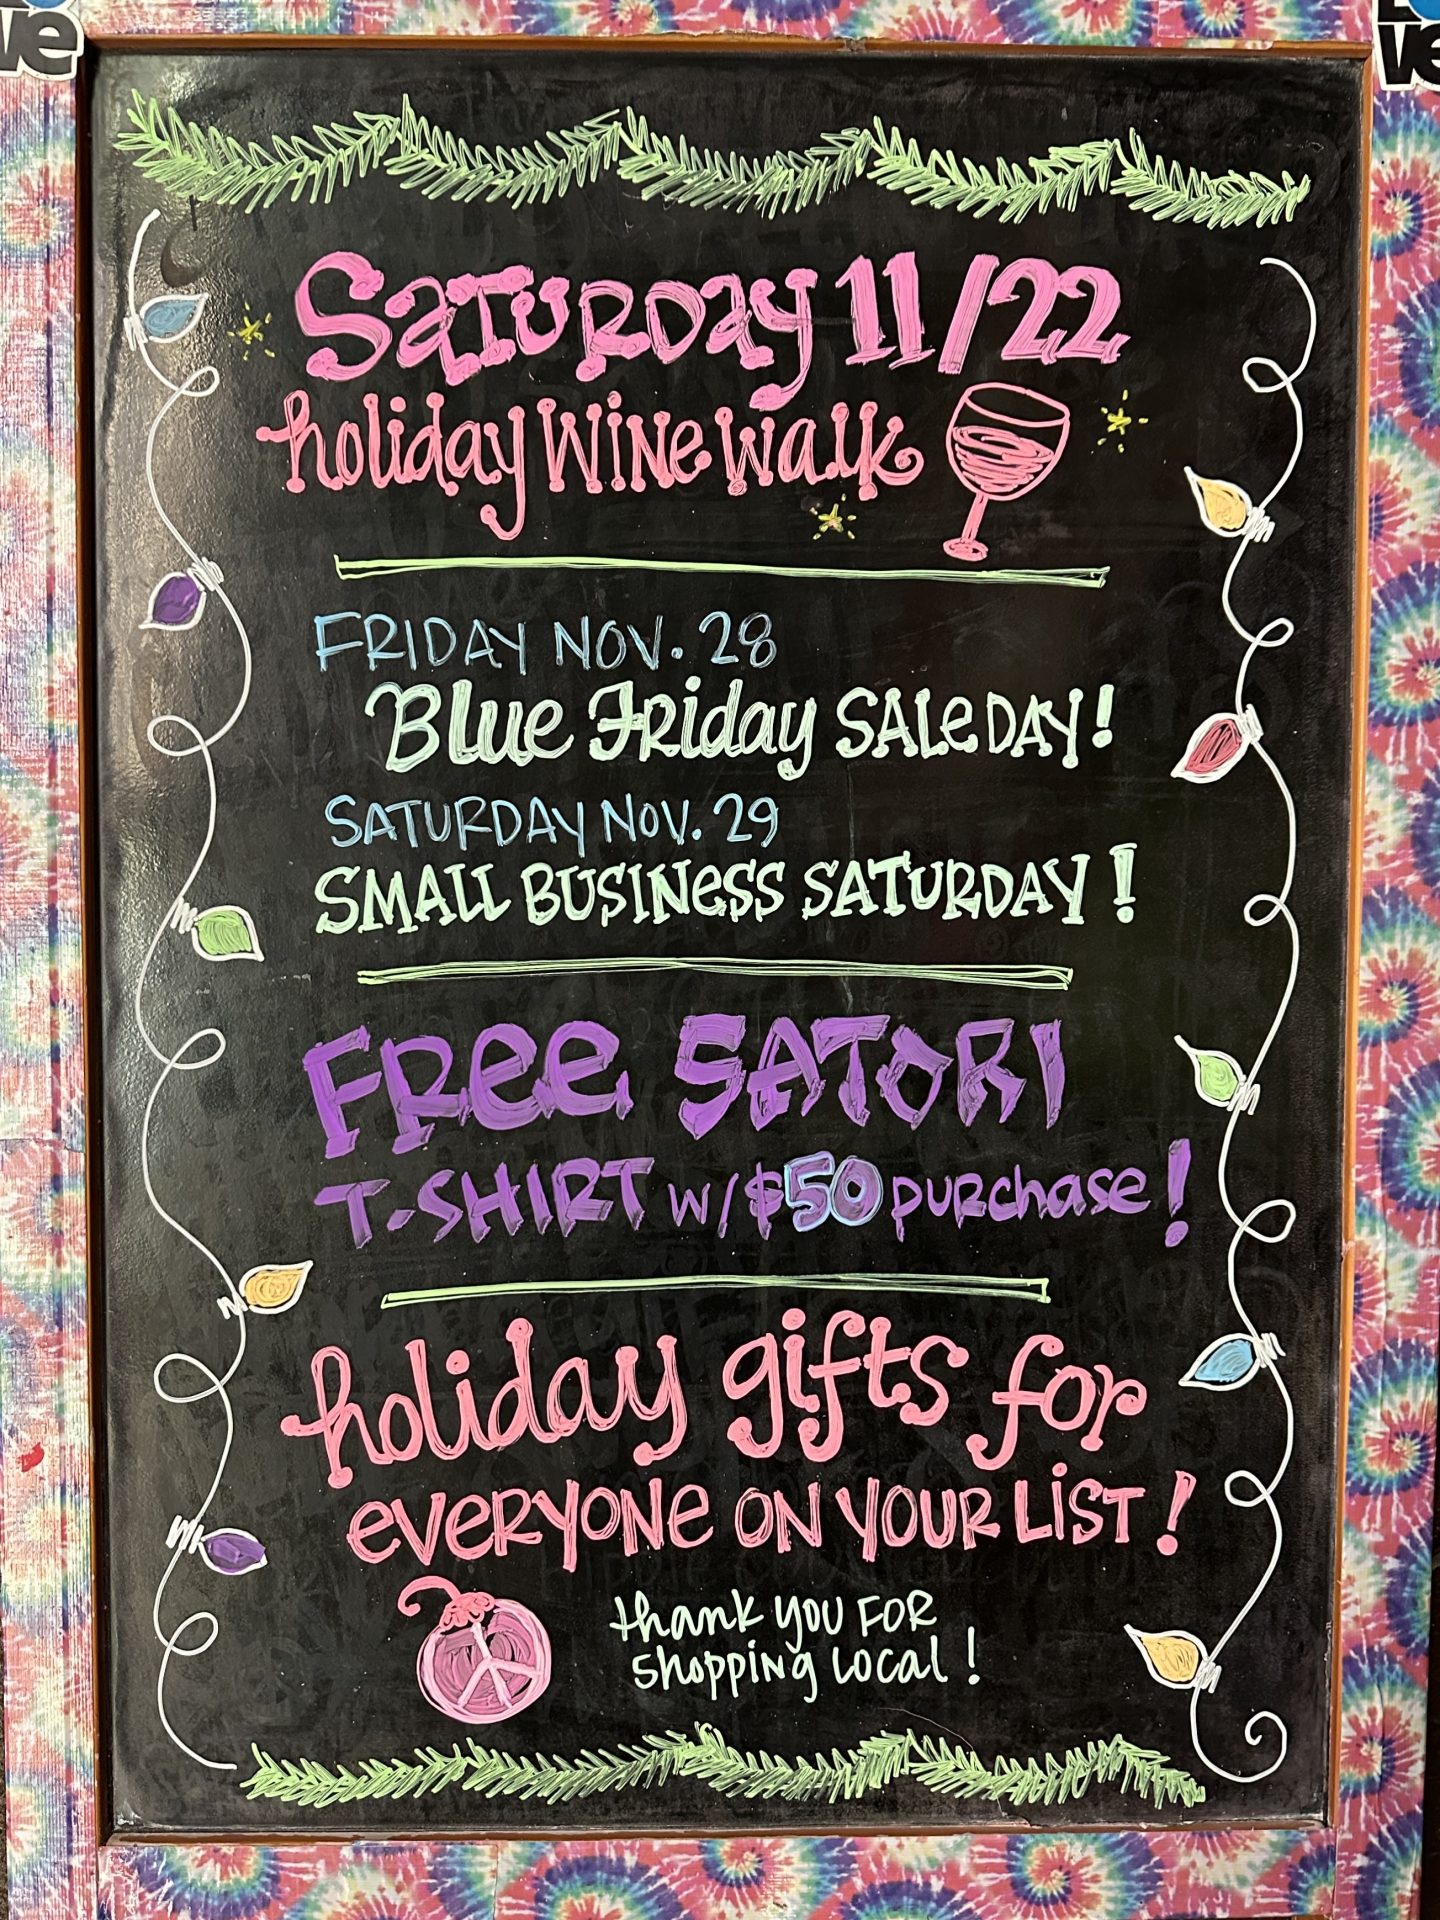 Saturday 11/22
holiday wine walk
FRIDAY NOV. 28
Blue Friday SALE DAY!
SATURDAY NOV. 29
SMALL BUSINESS SATURDAY!
FREE SATORI
T-SHIRT w/ $50 purchase!
holiday gifts for
everyone on your list!
thank you for
shopping local!